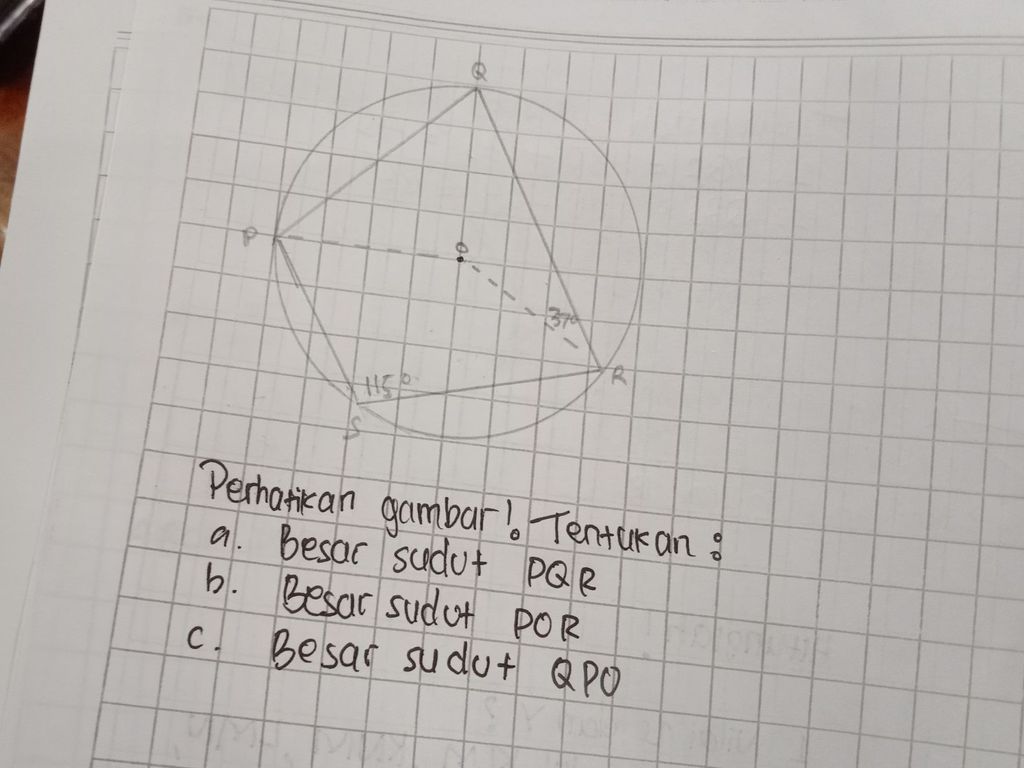 Q
P
O
37°
R
115°
S
Perhatikan gambar! Tentukan :
a. Besar sudut PQR
b. Besar sudut POR
c. Besar sudut QPO